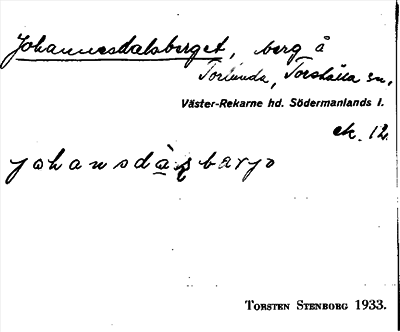 Johannesdalsberget, berg å
Torlunda, Torshälla sn,
Väster-Rekarne hd. Södermanlands l.
ek. 12.
johansdàʂbarjə
TORSTEN STENBORG 1933.